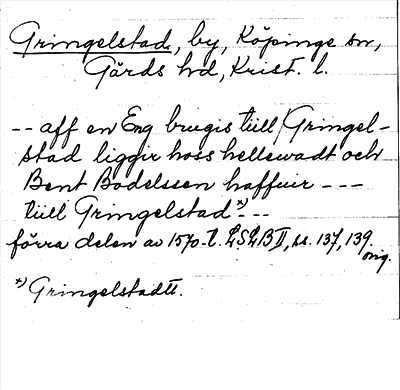 Gringelstad, by, Köpinge sn,
Gärds hd, Krist. l.
-- aff en Eng brugis tiill Gringel-
stad liggir hoss hellewadt och
Bent Bodelssen haffuir ---
tiill Gringelstad*) --
förra delen av 1570-t. LSLB II, ss. 137, 139.
orig.
*) Gringelstadtt.